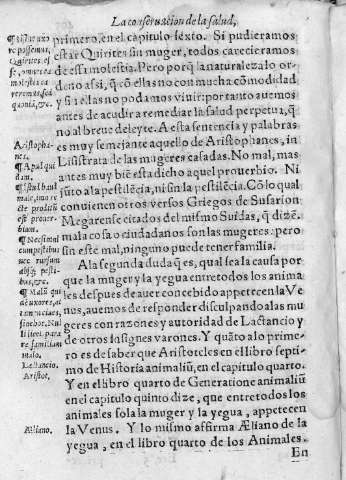 La conseruacion de la salud,
primero, en el capitulo sexto. Si pudieramos
estar Quirites sin muger, todos careciéramos
de essa molestia. Pero porq̃ la naturaleza lo or-
deno assi, q̃ cõ ellas no con mucha cõmodidad
y sin ellas no podamos viuir: por tanto auemos
antes de acudir a remediar la salud perpetua, q̃
no al breue deleyte. A esta sentencia y palabras
es muy semejante aquello de Aristophanes, in
Lisistrata de las mugeres casadas. No mal, mas
antes muy biẽ esta dicho aquel prouerbio. Ni
jũto a la pestilẽcia, ni sin la pestilẽcia. Cõ lo qual
conuienen otros versos Griegos de Susarion
Megarense citados del mismo Suidas, q̃ dizẽ.
mala cosa o ciudadanos son las mugeres: pero
sin este mal, ninguno puede tener familia.
A la segunda duda q̃ es, qual sea la causa por
que la muger y la yegua entre todos los anima
les despues de auer concebido appetecen la Ve
nus, auemos de responder disculpando a las mu
geres con razones y autoridad de Lactancio y
de otros insignes varones. Y quãto a lo prime-
ro es de saber que Aristoteles en el libro septi
mo de Historia animaliũ, en el capitulo quarto.
Y en el libro quarto de Generatione animaliũ
en el capitulo quinto dize, que entre todos los
animales sola la muger y la yegua, appetecen
la Venus. Y lo mismo affirma Æliano de la
yegua, en el libro quarto de los Animales.
En
re possemus,
Quirites, es
Aristopha-
nes.
¶ Apul qui
dam.
male, imo re
cte prodiũt
est prouer-
bium.
¶ Nec simul
cum pestibus
nec rursum
absq; pesti-
bus, &c.
¶ Malũ qui
dẽ uxores, at
tamen ciues,
sine hoc, Nul
li licet para
re familiam
malo.
Lactancio.
Aristot.
Æliano.